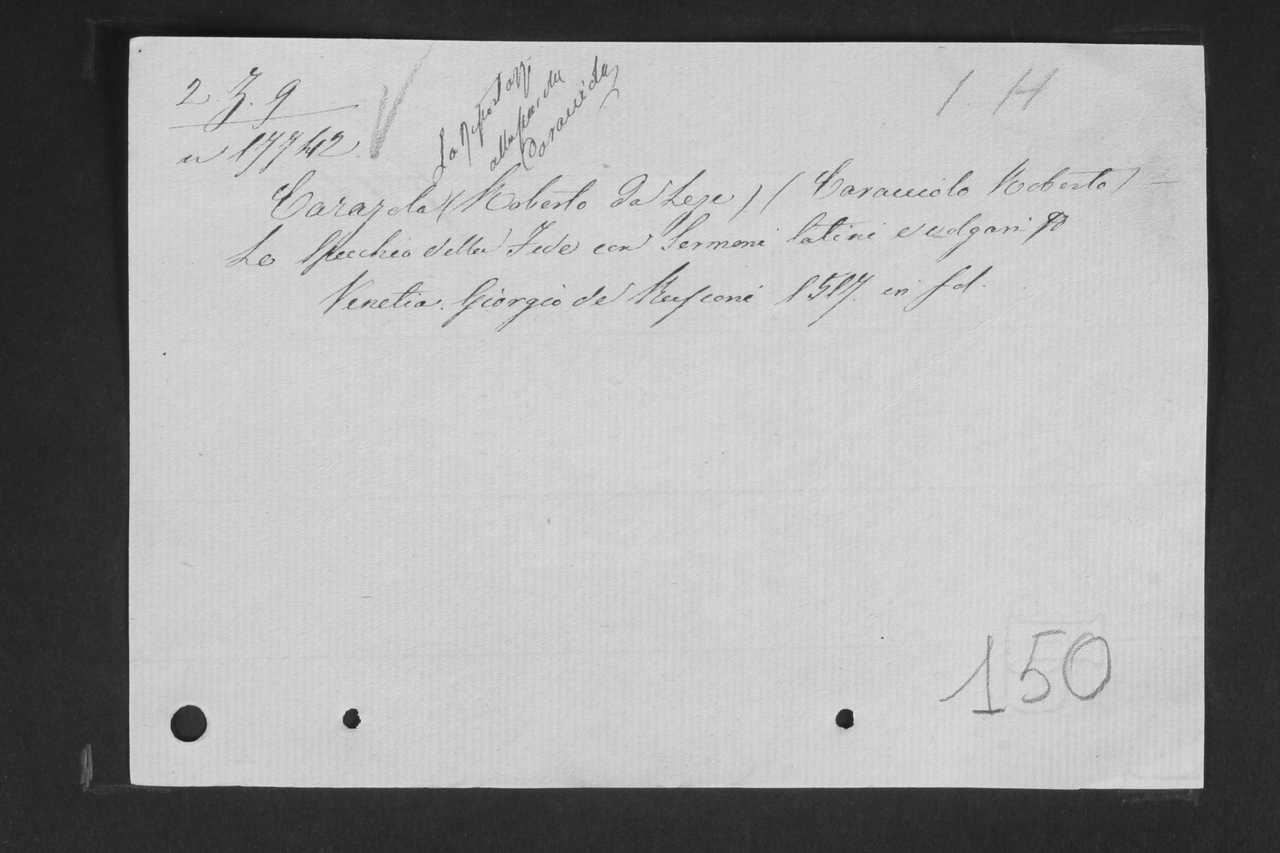 2. Z. 9
n 17742
1 H
Carazola (Roberto da Leze) (Caracciolo Roberto)
Lo Specchio della Fede con Sermoni latini e vulgari
Venetia. Giorgio de Rusconi 1517. in fol.
150